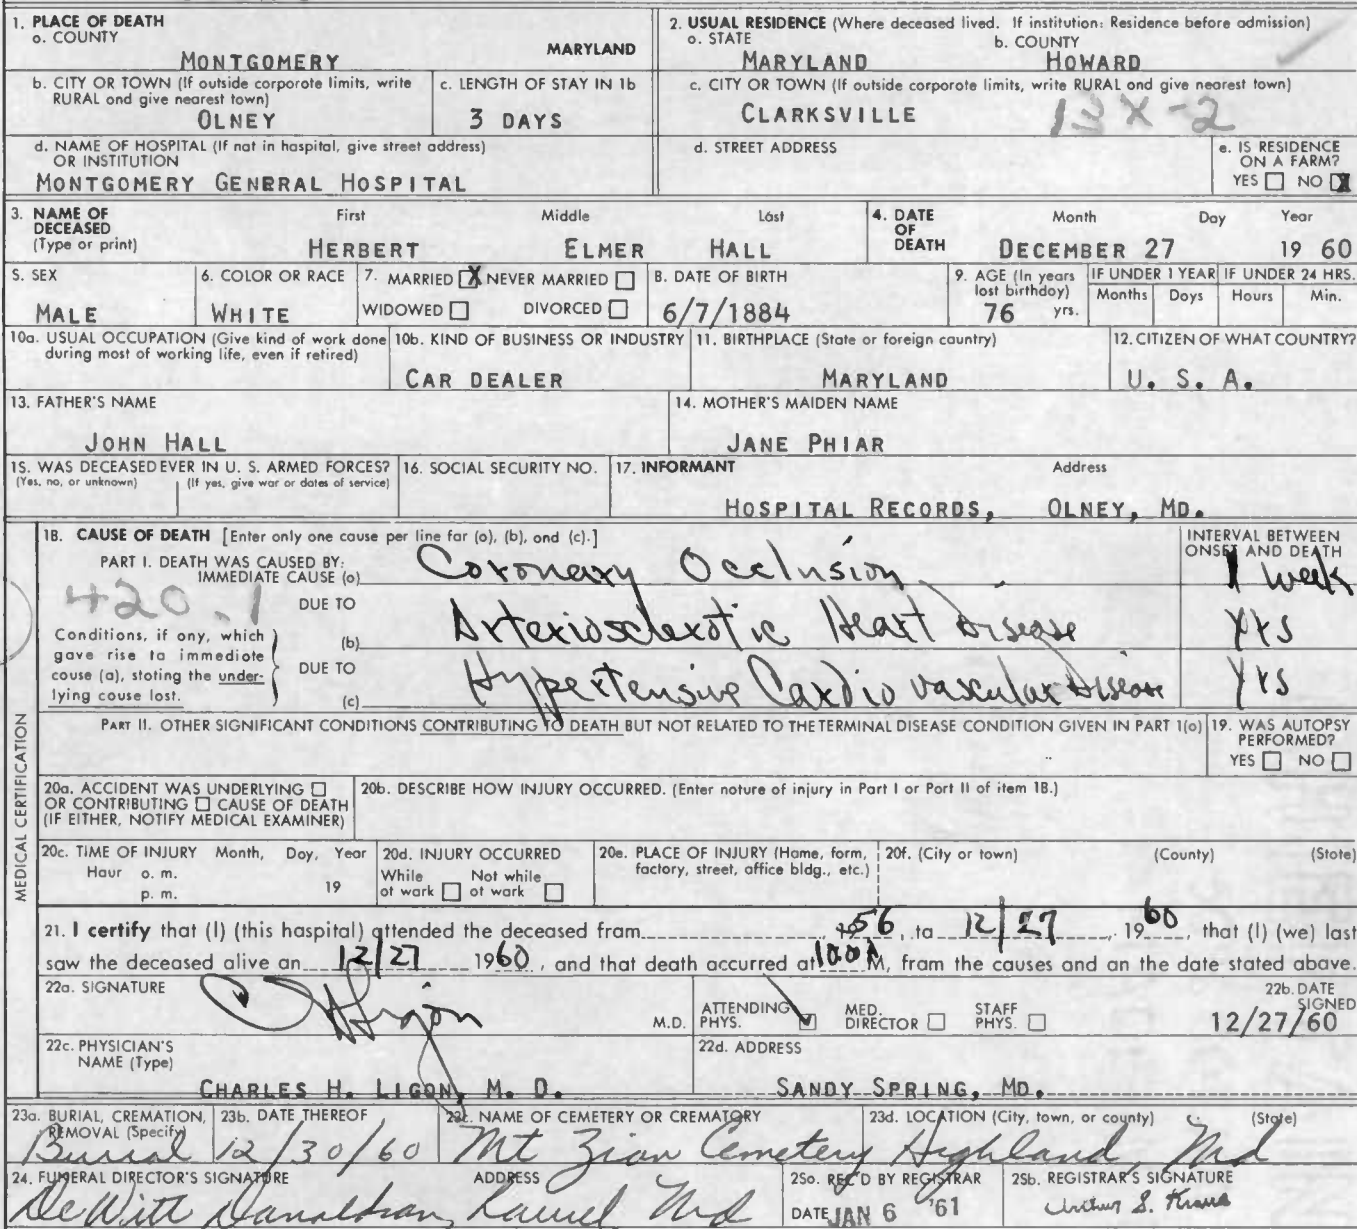 1. PLACE OF DEATH
a. COUNTY
MONTGOMERY MARYLAND
2. USUAL RESIDENCE (Where deceased lived. If institution: Residence before admission)
a. STATE b. COUNTY
MARYLAND HOWARD
b. CITY OR TOWN (If outside corporate limits, write RURAL and give nearest town)
OLNEY
c. LENGTH OF STAY IN 1b
3 DAYS
c. CITY OR TOWN (If outside corporate limits, write RURAL and give nearest town)
CLARKSVILLE 13X-2
d. NAME OF HOSPITAL (If not in hospital, give street address)
OR INSTITUTION
MONTGOMERY GENERAL HOSPITAL
d. STREET ADDRESS
e. IS RESIDENCE
ON A FARM?
YES NO X
3. NAME OF
DECEASED
(Type or print)
First Middle Last
HERBERT ELMER HALL
4. DATE
OF
DEATH
Month Day Year
DECEMBER 27 19 60
5. SEX
MALE
6. COLOR OR RACE
WHITE
7. MARRIED X NEVER MARRIED
WIDOWED DIVORCED
8. DATE OF BIRTH
6/7/1884
9. AGE (In years
last birthday)
76 yrs.
IF UNDER 1 YEAR IF UNDER 24 HRS.
Months Days Hours Min.
10a. USUAL OCCUPATION (Give kind of work done
during most of working life, even if retired)
10b. KIND OF BUSINESS OR INDUSTRY
CAR DEALER
11. BIRTHPLACE (State or foreign country)
MARYLAND
12. CITIZEN OF WHAT COUNTRY?
U. S. A.
13. FATHER'S NAME
JOHN HALL
14. MOTHER'S MAIDEN NAME
JANE PHIAR
15. WAS DECEASED EVER IN U. S. ARMED FORCES?
(Yes, no, or unknown) (If yes, give war or dates of service)
16. SOCIAL SECURITY NO.
17. INFORMANT Address
HOSPITAL RECORDS, OLNEY, MD.
MEDICAL CERTIFICATION
18. CAUSE OF DEATH [Enter only one cause per line for (a), (b), and (c).]
INTERVAL BETWEEN
ONSET AND DEATH
PART I. DEATH WAS CAUSED BY:
IMMEDIATE CAUSE (a) Coronary Occlusion 1 week
420.1
DUE TO
(b) Arteriosclerotic Heart Disease Yrs
Conditions, if any, which
gave rise to immediate
cause (a), stating the under-
lying cause last.
DUE TO
(c) Hypertensive Cardio vascular Disease Yrs
PART II. OTHER SIGNIFICANT CONDITIONS CONTRIBUTING TO DEATH BUT NOT RELATED TO THE TERMINAL DISEASE CONDITION GIVEN IN PART 1(a)
19. WAS AUTOPSY
PERFORMED?
YES NO
20a. ACCIDENT WAS UNDERLYING
OR CONTRIBUTING CAUSE OF DEATH
(IF EITHER, NOTIFY MEDICAL EXAMINER)
20b. DESCRIBE HOW INJURY OCCURRED. (Enter nature of injury in Part I or Part II of item 18.)
20c. TIME OF INJURY Month, Day, Year
Hour a. m.
p. m. 19
20d. INJURY OCCURRED
While Not while
at work at work
20e. PLACE OF INJURY (Home, farm,
factory, street, office bldg., etc.)
20f. (City or town) (County) (State)
21. I certify that (I) (this hospital) attended the deceased from 1956, to 12/27, 1960, that (I) (we) last
saw the deceased alive on 12/27 1960, and that death occurred at 10:00 A M, from the causes and on the date stated above.
22a. SIGNATURE
C H Ligon M.D.
ATTENDING
PHYS.
MED.
DIRECTOR
STAFF
PHYS.
22b. DATE
SIGNED
12/27/60
22c. PHYSICIAN'S
NAME (Type)
CHARLES H. LIGON, M. D.
22d. ADDRESS
SANDY SPRING, MD.
23a. BURIAL, CREMATION,
REMOVAL (Specify)
Burial
23b. DATE THEREOF
12/30/60
23c. NAME OF CEMETERY OR CREMATORY
Mt Zion Cemetery
23d. LOCATION (City, town, or county) (State)
Highland, Md
24. FUNERAL DIRECTOR'S SIGNATURE ADDRESS
DeWitt Danaldson, Laurel, Md
25a. REC'D BY REGISTRAR
DATE JAN 6 '61
25b. REGISTRAR'S SIGNATURE
Arthur S. Kraus